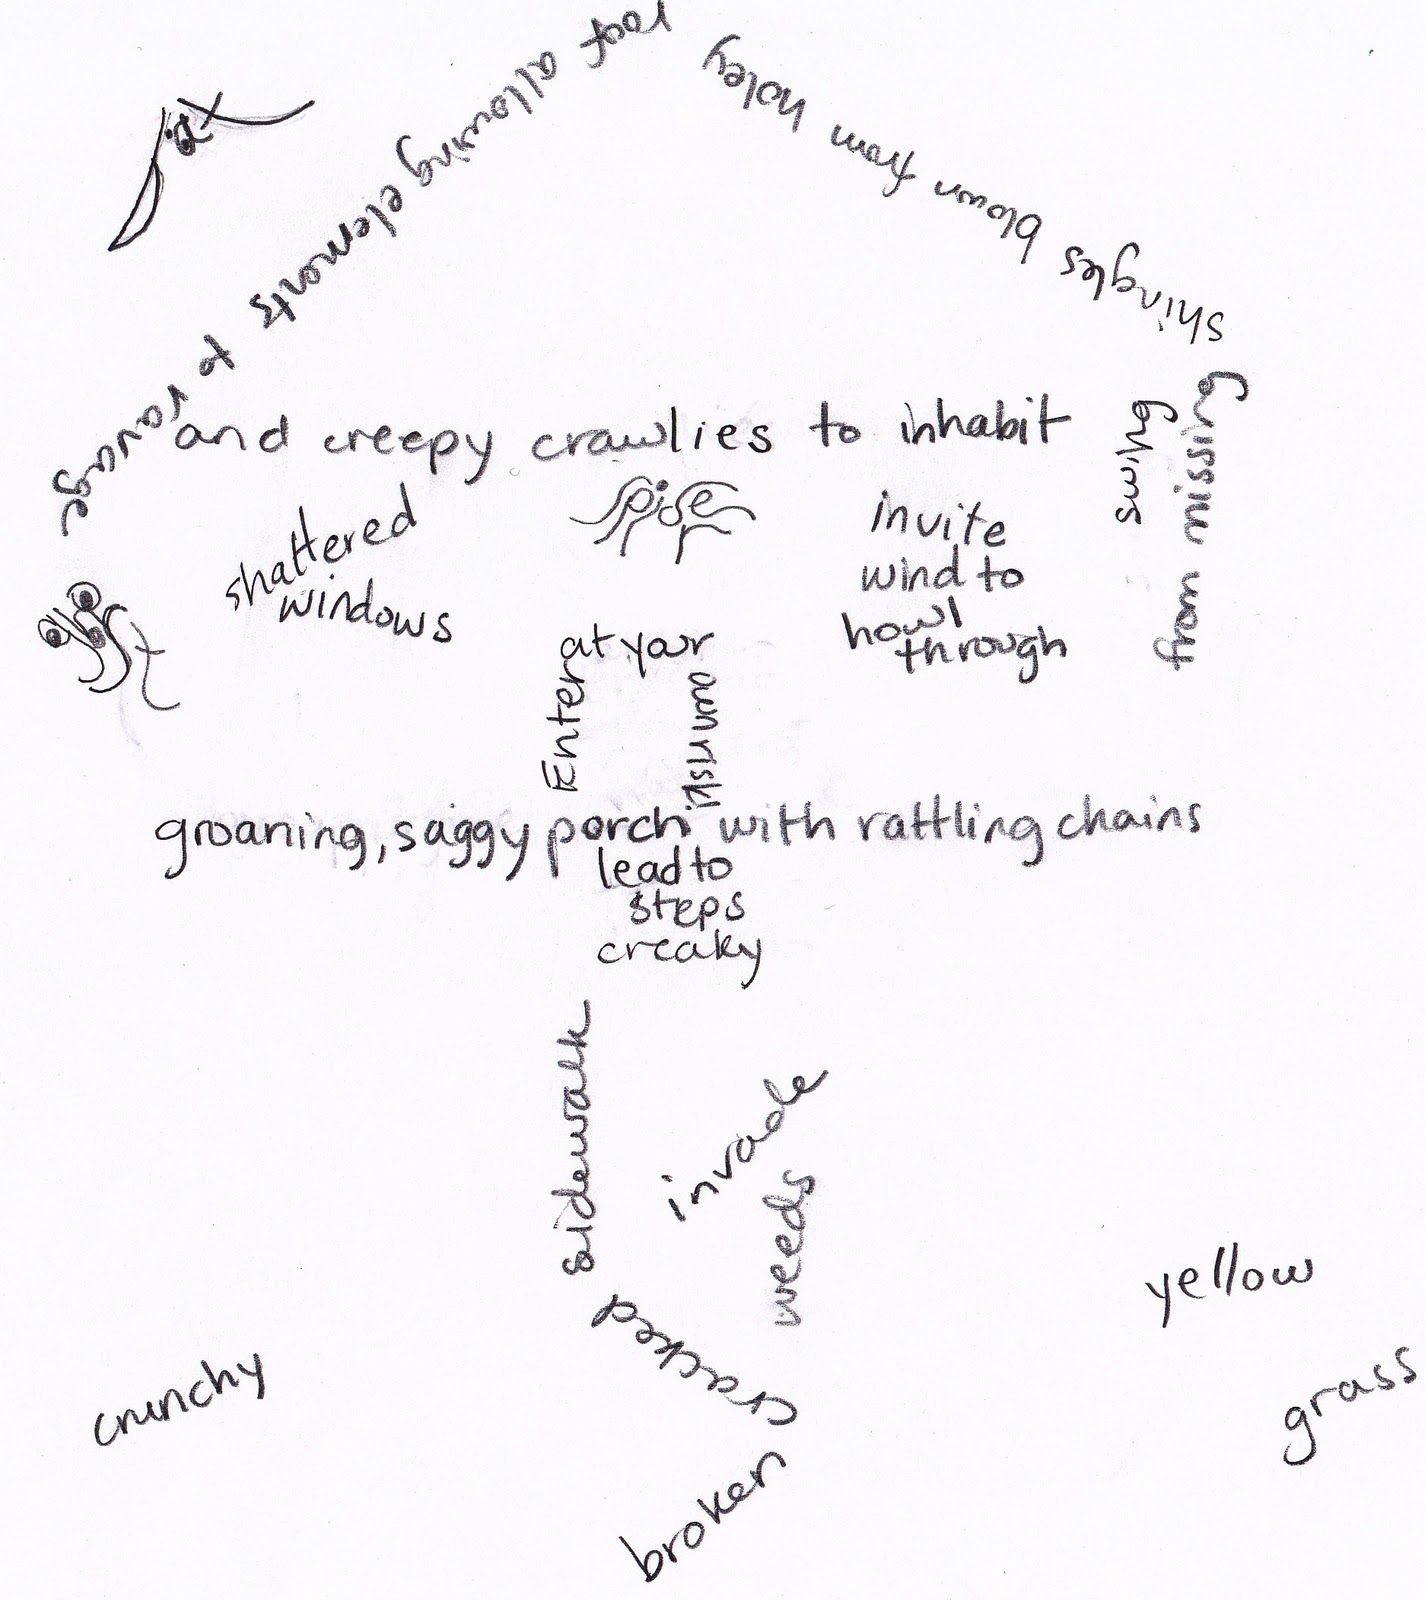 roof allowing elements to ravage
shingles blown from holey
and creepy crawlies to inhabit
swing
from missing
spider
shattered
windows
invite
wind to
howl
through
Enter
at your
own risk!
groaning, saggy porch with rattling chains
lead to
steps
creaky
sidewalk
invade
weeds
cracked
broken
crunchy
yellow
grass